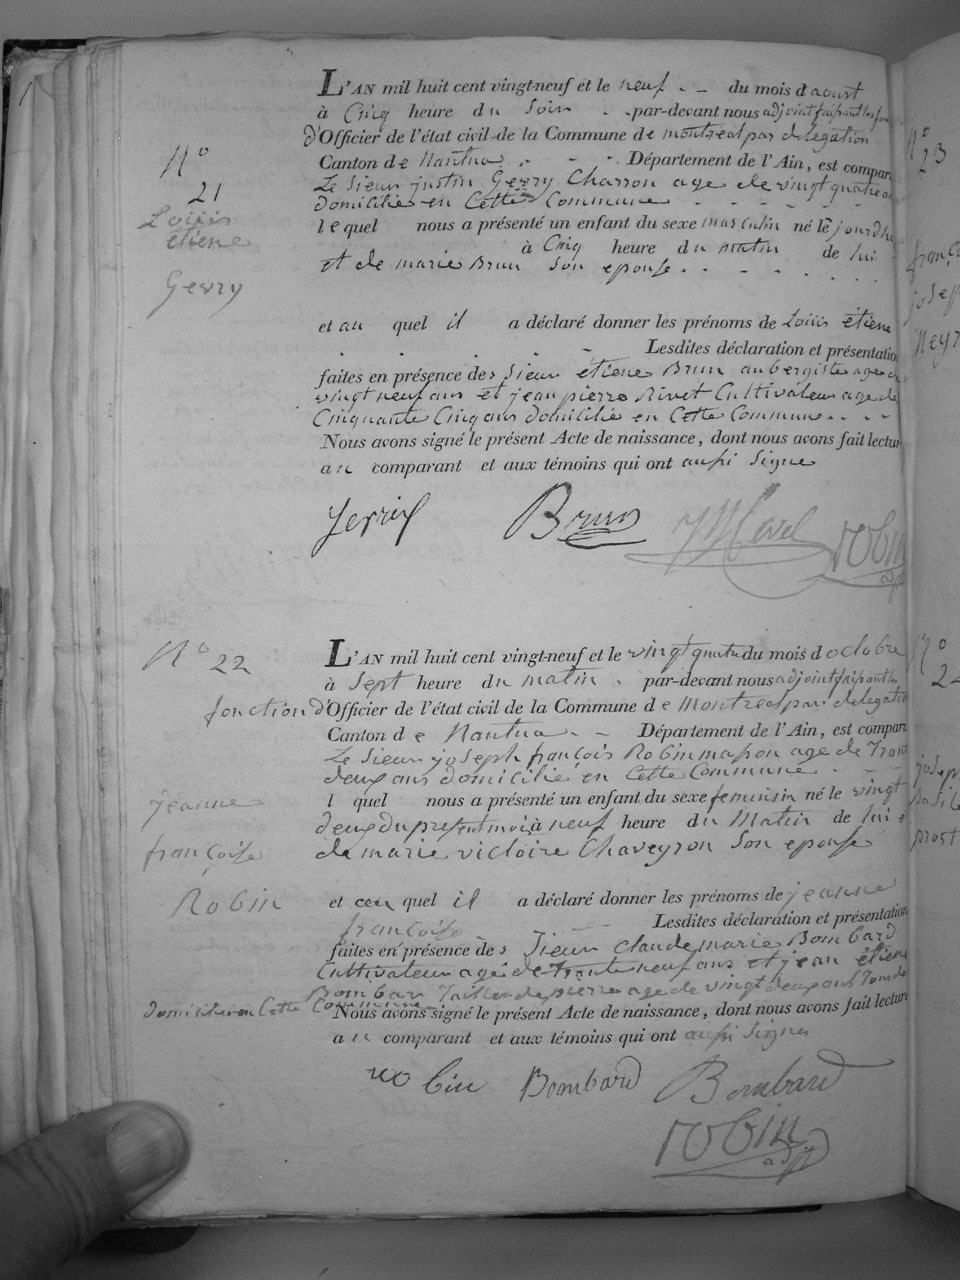 N° 21
Louis
étiene
Gevry
L'AN mil huit cent vingt-neuf et le neuf du mois d aoust
à Cinq heure du Soir par-devant nous adjoint faisant les fon
d'Officier de l'état civil de la Commune de montreal par delegation
Canton de Nantua Département de l'Ain, est compar
Le Sieur justin Gevry Charron age de vingt quatre an
domicilié en Cette Commune
lequel nous a présenté un enfant du sexe masculin né le jourdhu
à Cinq heure du matin de lui
et de marie Brun Son epouse
et au quel il a déclaré donner les prénoms de Louis étiene
Lesdites déclaration et présentation
faites en présence des Sieur étiene Brun aubergiste age de
vingt neuf ans et jean pierre Rivet Cultivateur age de
Cinquante Cinq ans domicilié en Cette Commune
Nous avons signé le présent Acte de naissance, dont nous avons fait lectur
au comparant et aux témoins qui ont aussi Signe
Brun
robin
adjt
N° 22
jeanne
françoise
Robin
L'AN mil huit cent vingt-neuf et le vingt quatre du mois d octobre
à Sept heure du matin par-devant nous adjoint faisant la
fonction d'Officier de l'état civil de la Commune de Montreal par delegation
Canton de Nantua Département de l'Ain, est compar
Le Sieur joseph françois Robin masson age de Trente
deux ans domicilié en Cette Commune
l quel nous a présenté un enfant du sexe feminin né le vingt
deux du present mois à neuf heure du Matin de lui e
de marie victoire Chaveyron Son epouse
et au quel il a déclaré donner les prénoms de jeanne
françoise Lesdites déclaration et présentation
faites en présence des Sieur Claude marie Bombard
Cultivateur agé de Trente neuf ans et jean étiene
Bombar Tailleur de pierre age de vingt deux ans Tous de
domicilié en Cette Commune Nous avons signé le présent Acte de naissance, dont nous avons fait lecture
au comparant et aux témoins qui ont aussi Signe
robin Bombard Bombard
robin
adjt